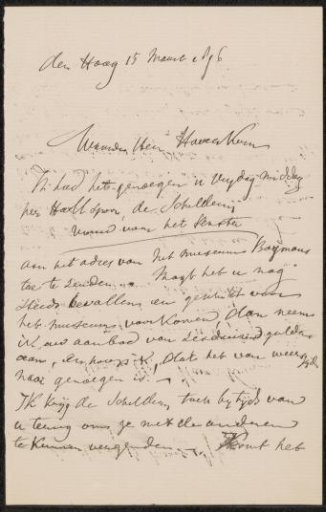 den Haag 15 Maart 1896
Waarde Heer Haverkorn
Ik had het genoegen u vrydag middag
per Holl Spoor, de Schildery
vrouw voor het venster
aan het adres van het museum Boymans
toe te zenden. Mogt het u nog
steeds bevallen en geschikt voor
het museum voorkomen dan neem
ik uw aanbod van duizend gulden
aan, hoop ik, dat het van weerszyds
naar genoegen is.
Ik kryg de Schildery by tyds van
u terug om ze met de anderen
te kunnen verzenden. Komt het